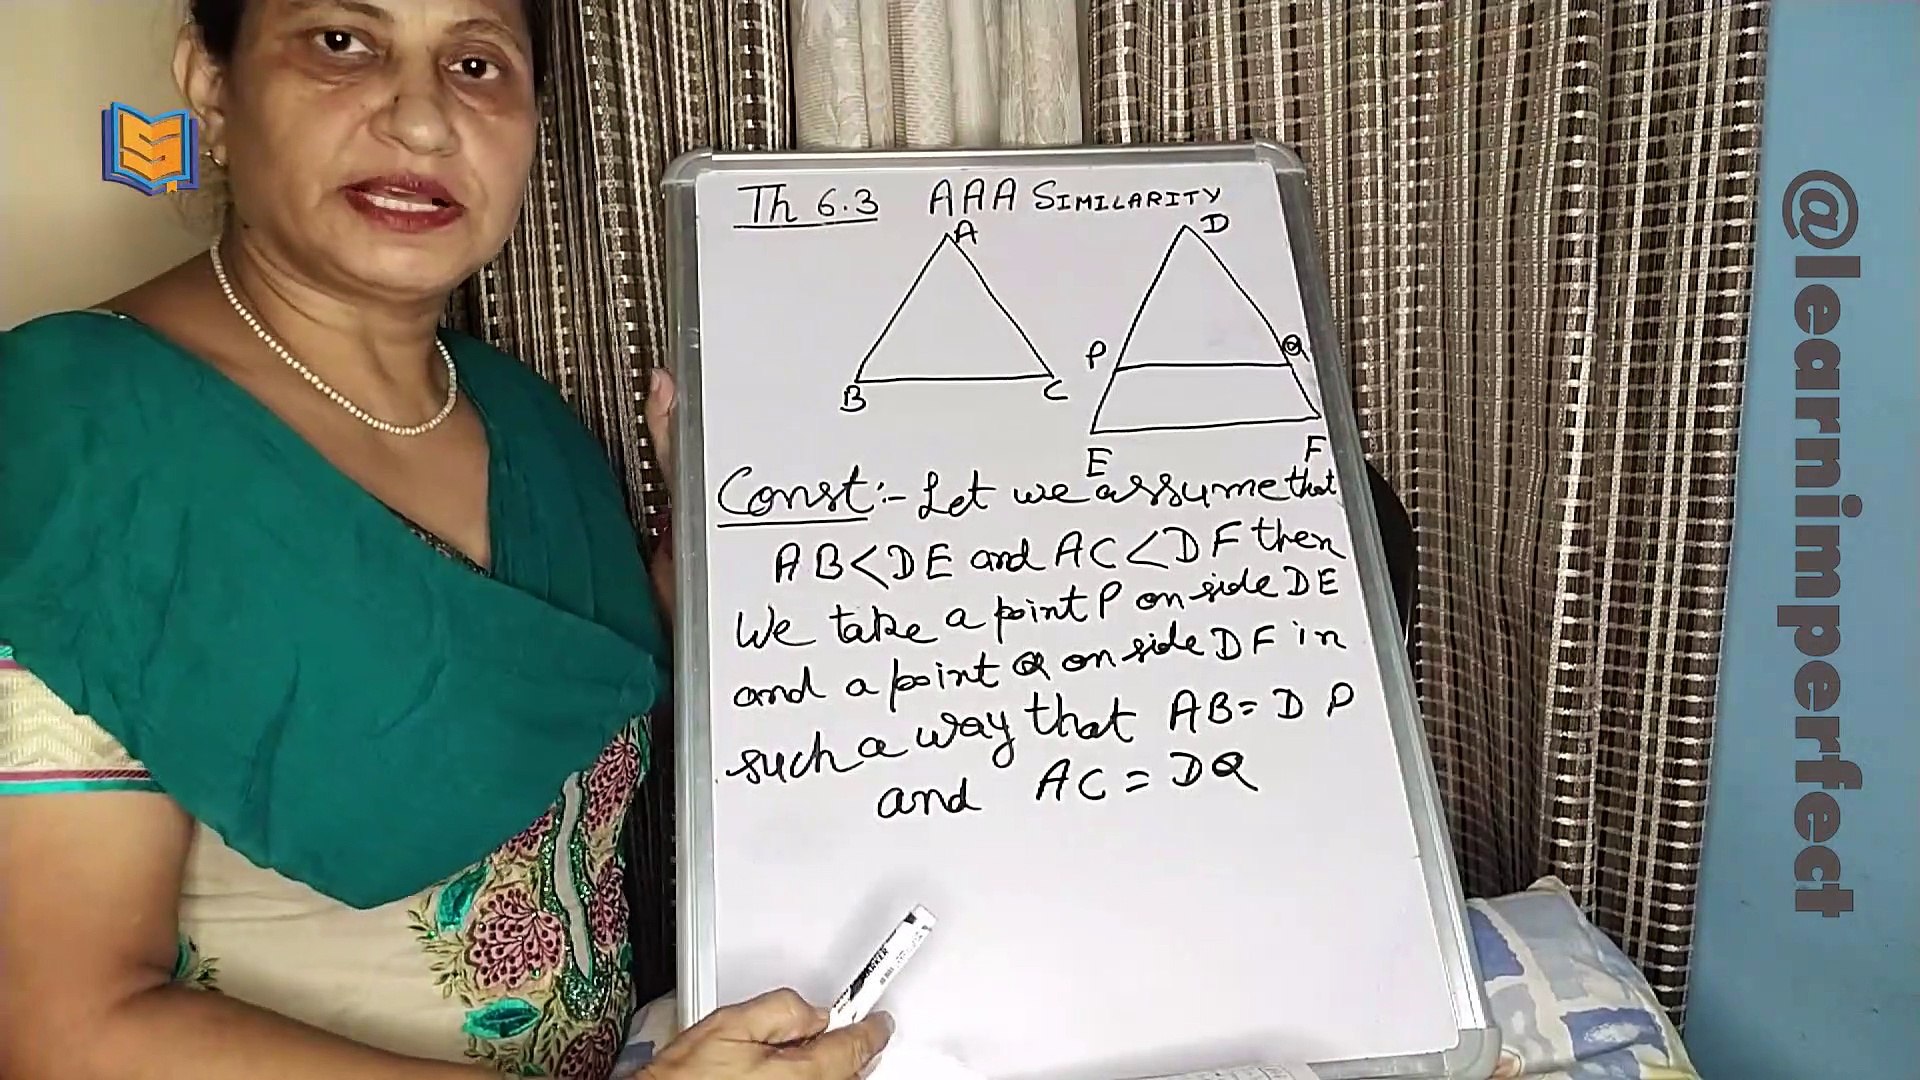 Th 6.3 AAA SIMILARITY
A
D
P
Q
B
C
E
F
Const:- Let we assume that
AB<DE and AC<DF then
We take a point P on side DE
and a point Q on side DF in
such a way that AB=DP
and AC=DQ
MARKER
@learnimperfect